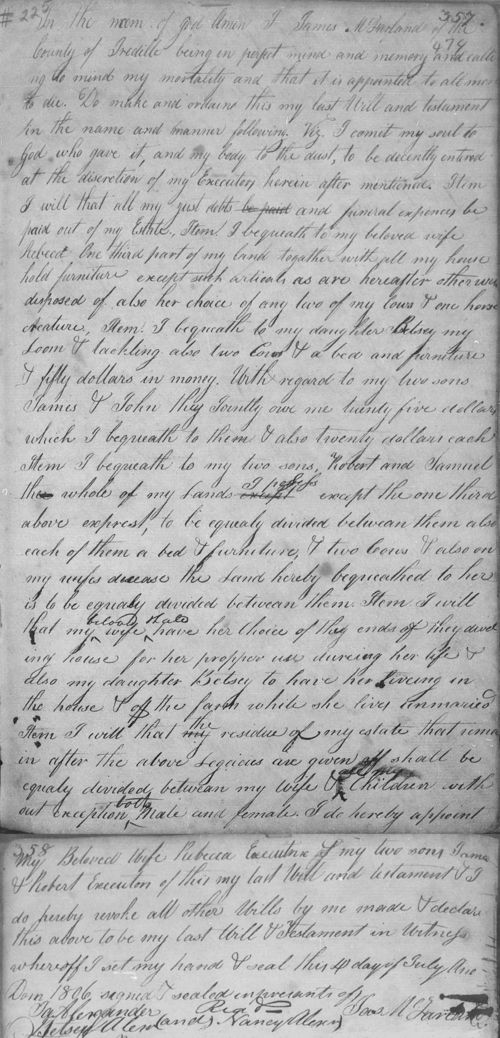 # 225 357
In the name of god Amen I James McFarland of the
479
County of Iredille being in perfict mind and memory and calle
ng to mind my mortality and that it is appointed to all men
to die. Do make and ordaine this my last Will and testament
in the name and manner following. Viz. I comit my soul to
god who gave it, and my body to the dust, to be decently entered
at the discretion of my Executors herein after mentioned. Item
I will that all my just debts be paid and funeral expences be
paid out of my Estate. Item. I bequeath to my beloved wife
Rebeca One third part of my land together with all my house
hold furniture except such articals as are hereafter otherwise
disposed of. also her choice of any two of my Cows & one horse
Creature, Item. I bequeath to my daughter Betsey my
Loom & tackling also two Cows & a bed and furniture
& fifty dollars in money. With regard to my two sons
James & John they Jointly owe me twenty five dollars
which I bequeath to them & also twenty dollars each
Item I bequeath to my two sons, Robert and Samuel
the whole of my Lands I possess except the one third
above exprest, to be equaly divided betwean them also
each of them a bed & furniture, & two Cows & also on
my wifes decease the Land hereby bequeathed to her
is to be equaly divided betwean them Item I will
that my beloved wife have her Choice of the ends of they dwel
ing house for her propper use dureing her life &
also my daughter Betsey to have her liveing in
the house & off the farm while she lives unmaried
Item I will that the residue of my estate that remain
in after the above Legacies are given off shall be
equaly divided betwean my wife & all my Children with
out exception both Male and female. I do hereby appoint
358
My Beloved Wife Rebecca Executrix & my two sons James
& Robert Executors of this my last Will and testament & I
do hereby revoke all other Wills by me made & declare
this above to be my last Will & Testament in Witness
whereoff I set my hand & seal this 4 day of July Ano
Dom 1806 signed & sealed in presents of
Ja Alexander Jas McFarland
Betsey Alexr Nancy Alexr